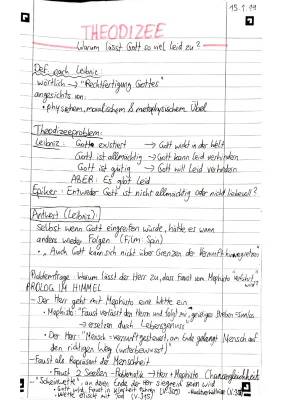 13.1.19
THEODIZEE
- Warum lässt Gott so viel Leid zu? -
Def. nach Leibniz:
wörtlich → "Rechtfertigung Gottes"
angesichts von:
• physischem, moralischem & metaphysischem Übel
Theodizeeproblem:
Leibniz: Gott existiert → Gott wirkt in der Welt
Gott ist allmächtig → Gott kann Leid verhindern
Gott ist gütig → Gott will Leid verhindern
ABER: Es gibt Leid
Epikur: Entweder Gott ist nicht allmächtig oder nicht liebevoll?
Antwort (Leibniz):
selbst wenn Gott eingreifen würde, hätte es wann
anders wieder Folgen (Film: Spin)
• "Auch Gott kann sich nicht über Grenzen der Vernunft hinwegsetzen"
Problemfrage: Warum lässt der Herr zu, dass Faust von Mephisto verführt wird?
PROLOG IM HIMMEL
- Der Herr geht mit Mephisto eine Wette ein
• Mephisto: "Faust verlässt den Herrn und folgt mir,
→ ersetzen durch Lebensgenuss"
• Der Herr: "Mensch = vernunftgesteuert, am Ende gelangt Mensch auf
den richtigen Weg
- Faust als Repräsentant der Menschheit
• Faust 2 Seelen - Problematik → Herr + Mephisto Chancengleichheit
• "Scheinwette", an deren Ende der Herr siegreich sein wird
- Gott wird Faust in Klarheit führen (V.309)
- Wette erlischt mit Tod (V.315)